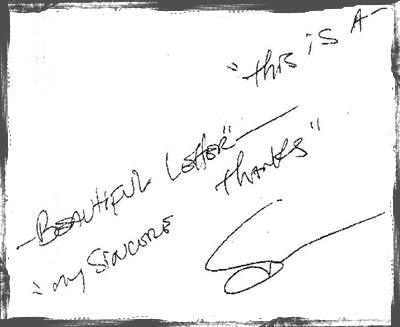 "This is A-
-BEAUTIFUL LETTER"-
"my SINCERE THANKS"